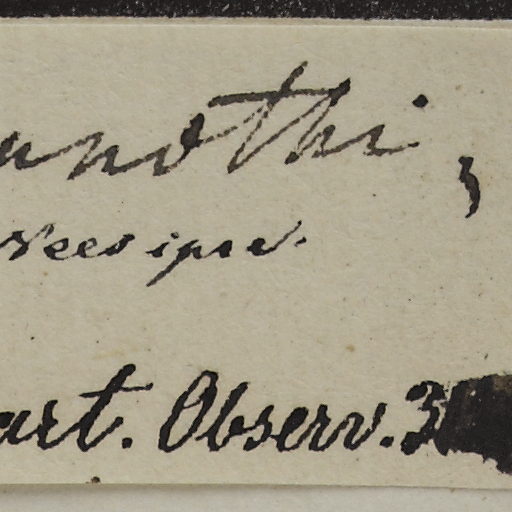 unothi,
Nees ipse.
art. Observ. 3